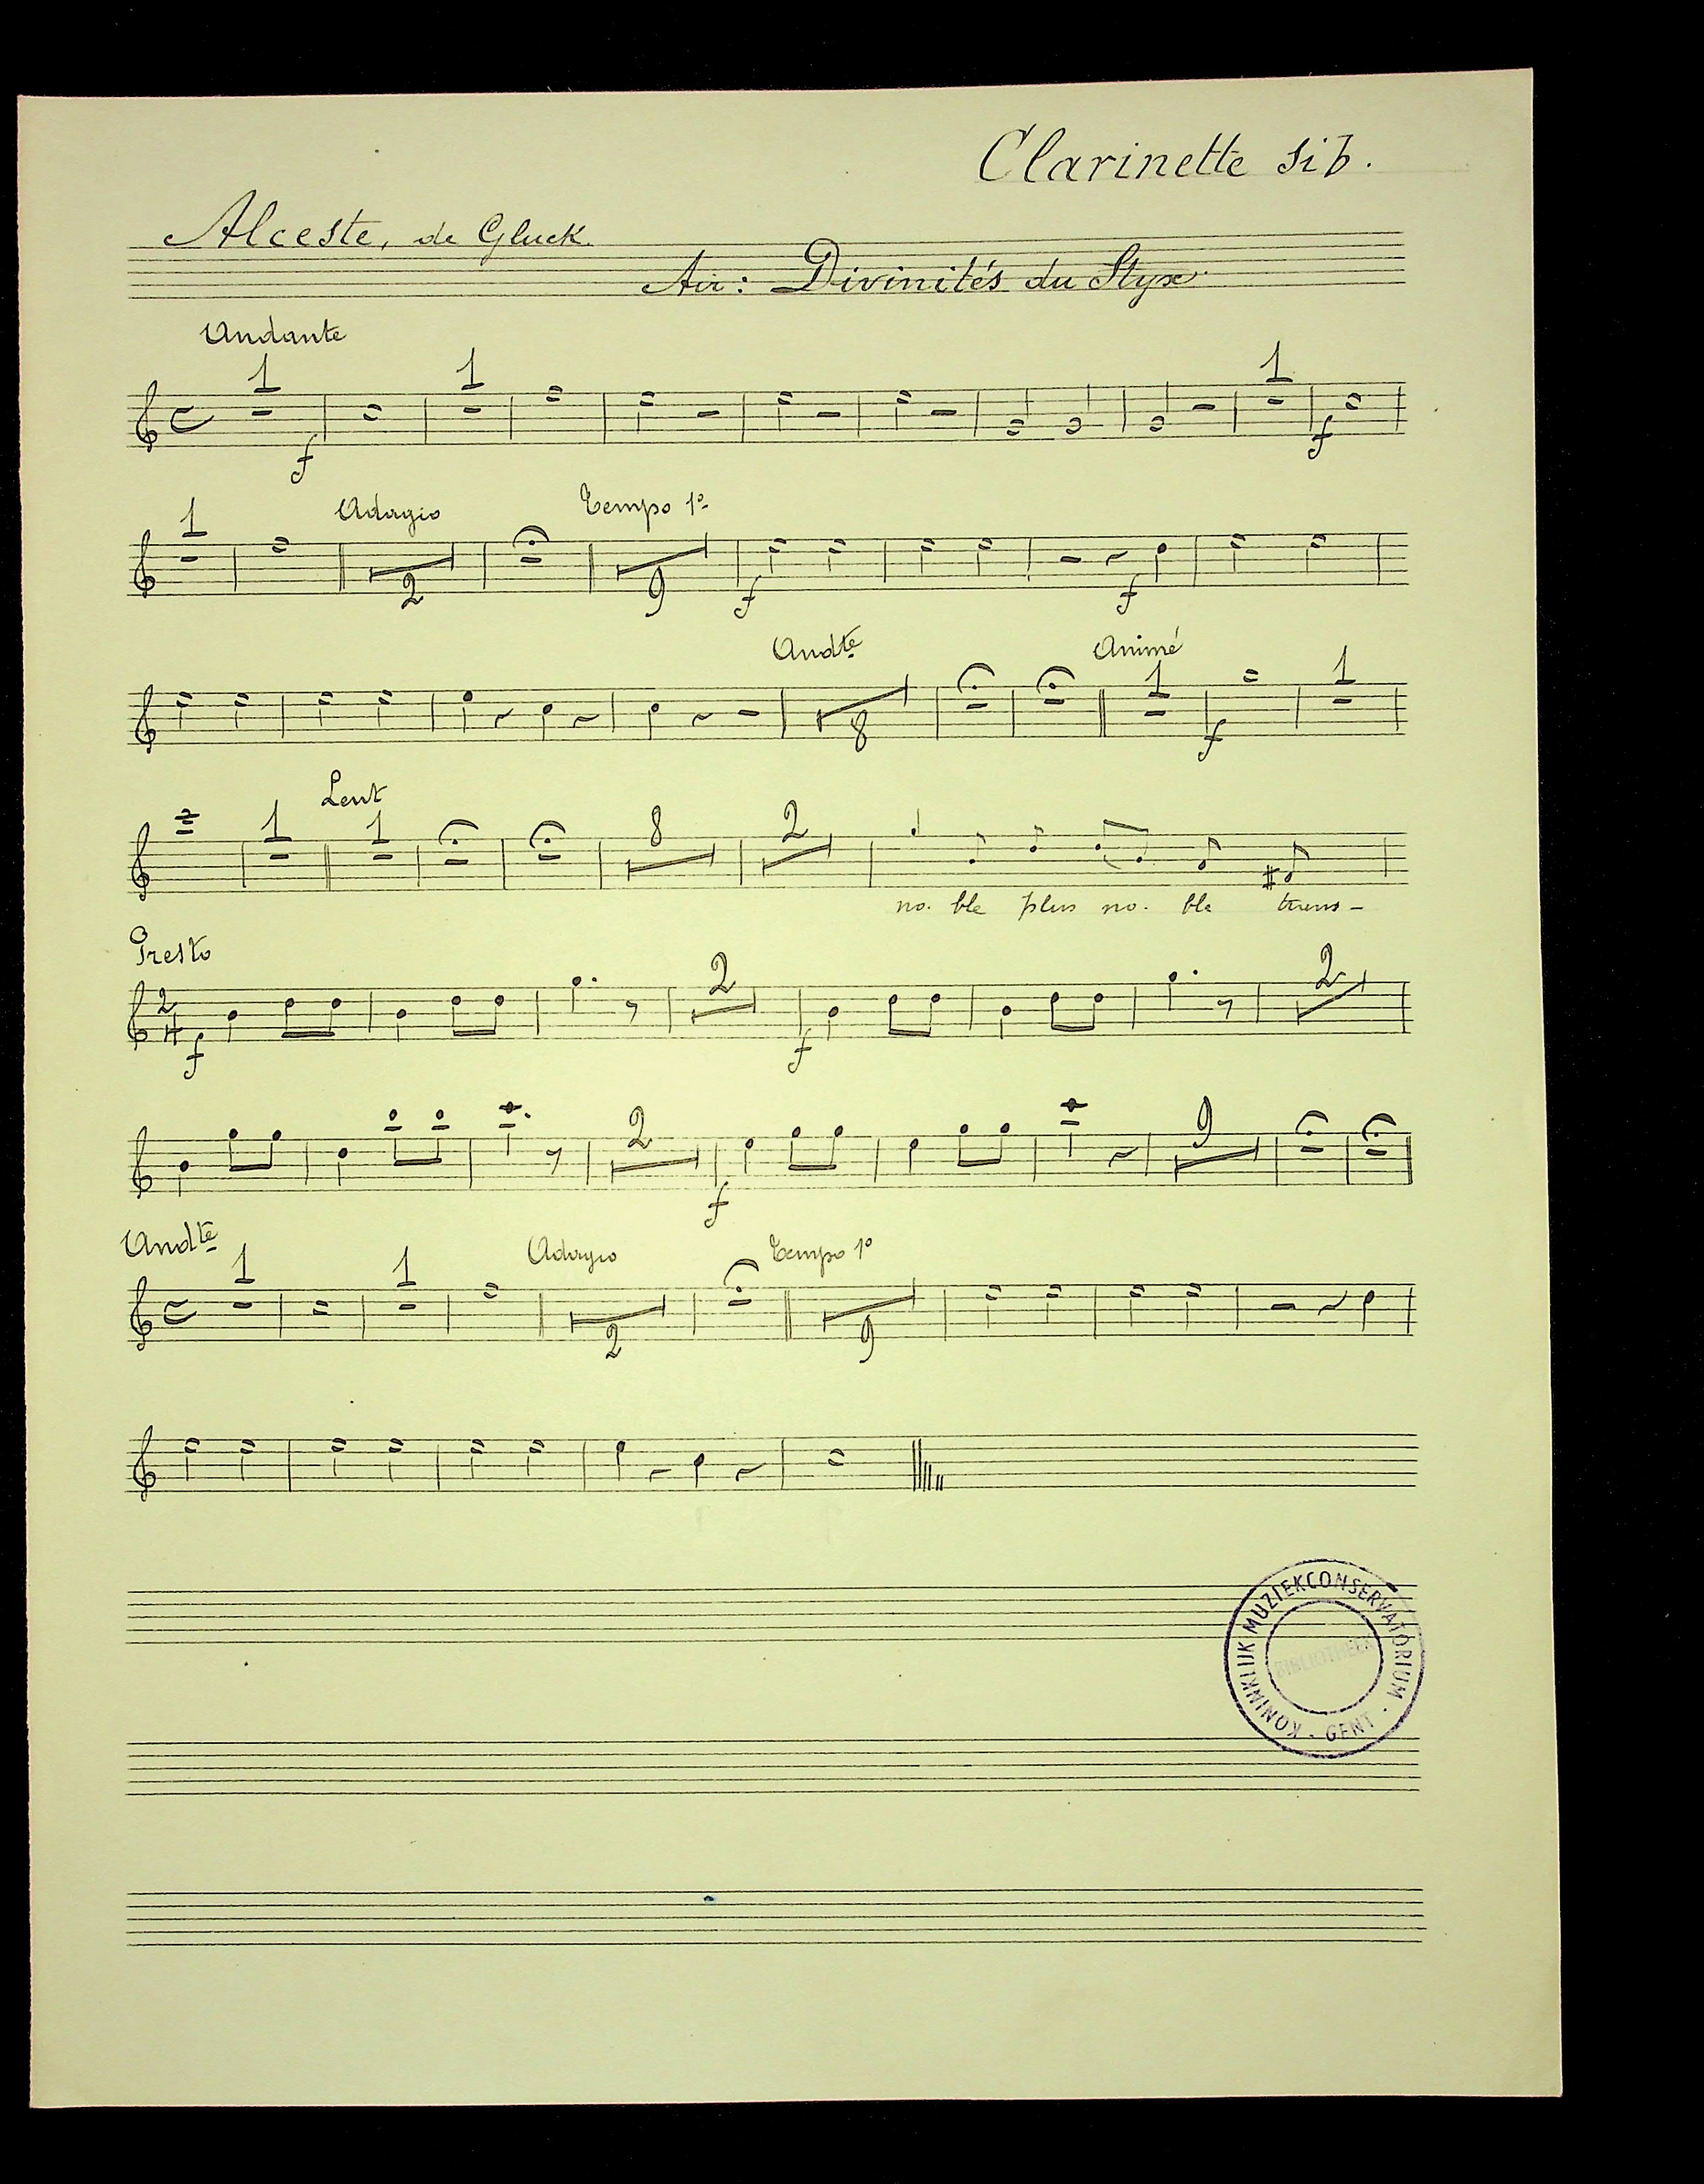 Clarinette sib.
Alceste, de Gluck.
Air: Divinités du Styx
Andante
1 1 1
f f
1 Adagio Tempo 1º
2 9
f f
Andte Animé
1 1
8
f
Lent
1 1 8 2
no. ble plus no. ble trans-
Presto
2 2
2
4
f f
2 9
f
Andte Adagio Tempo 1º
1 1
2 9
KONINKLIJK MUZIEKCONSERVATORIUM · GENT ·
BIBLIOTHEEK